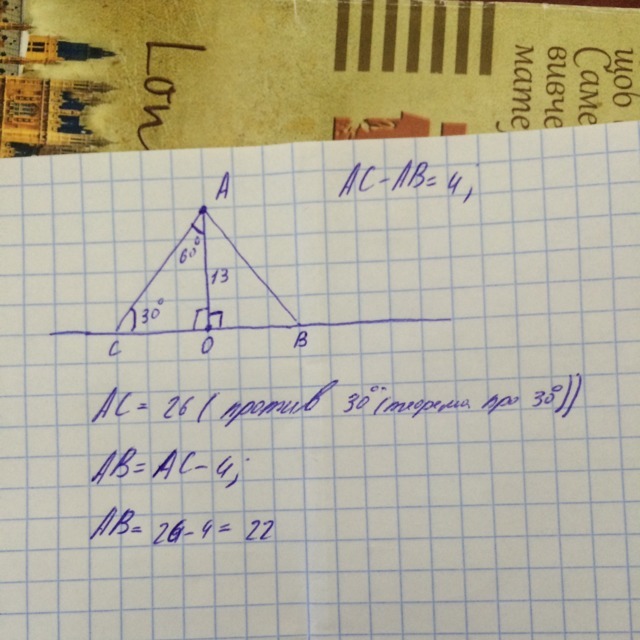 Lon
щоб
Саме
вивче
мате
AC-AB=4;
A
60°
13
30°
C
O
B
AC = 26 ( против 30° (теорема про 30°))
AB = AC-4;
AB= 26-4 = 22